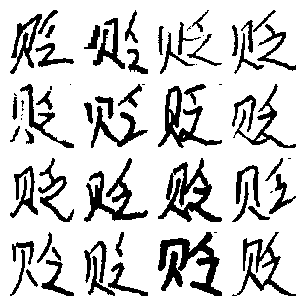 贬贬贬贬
贬贬贬贬
贬贬贬贬
贬贬贬贬